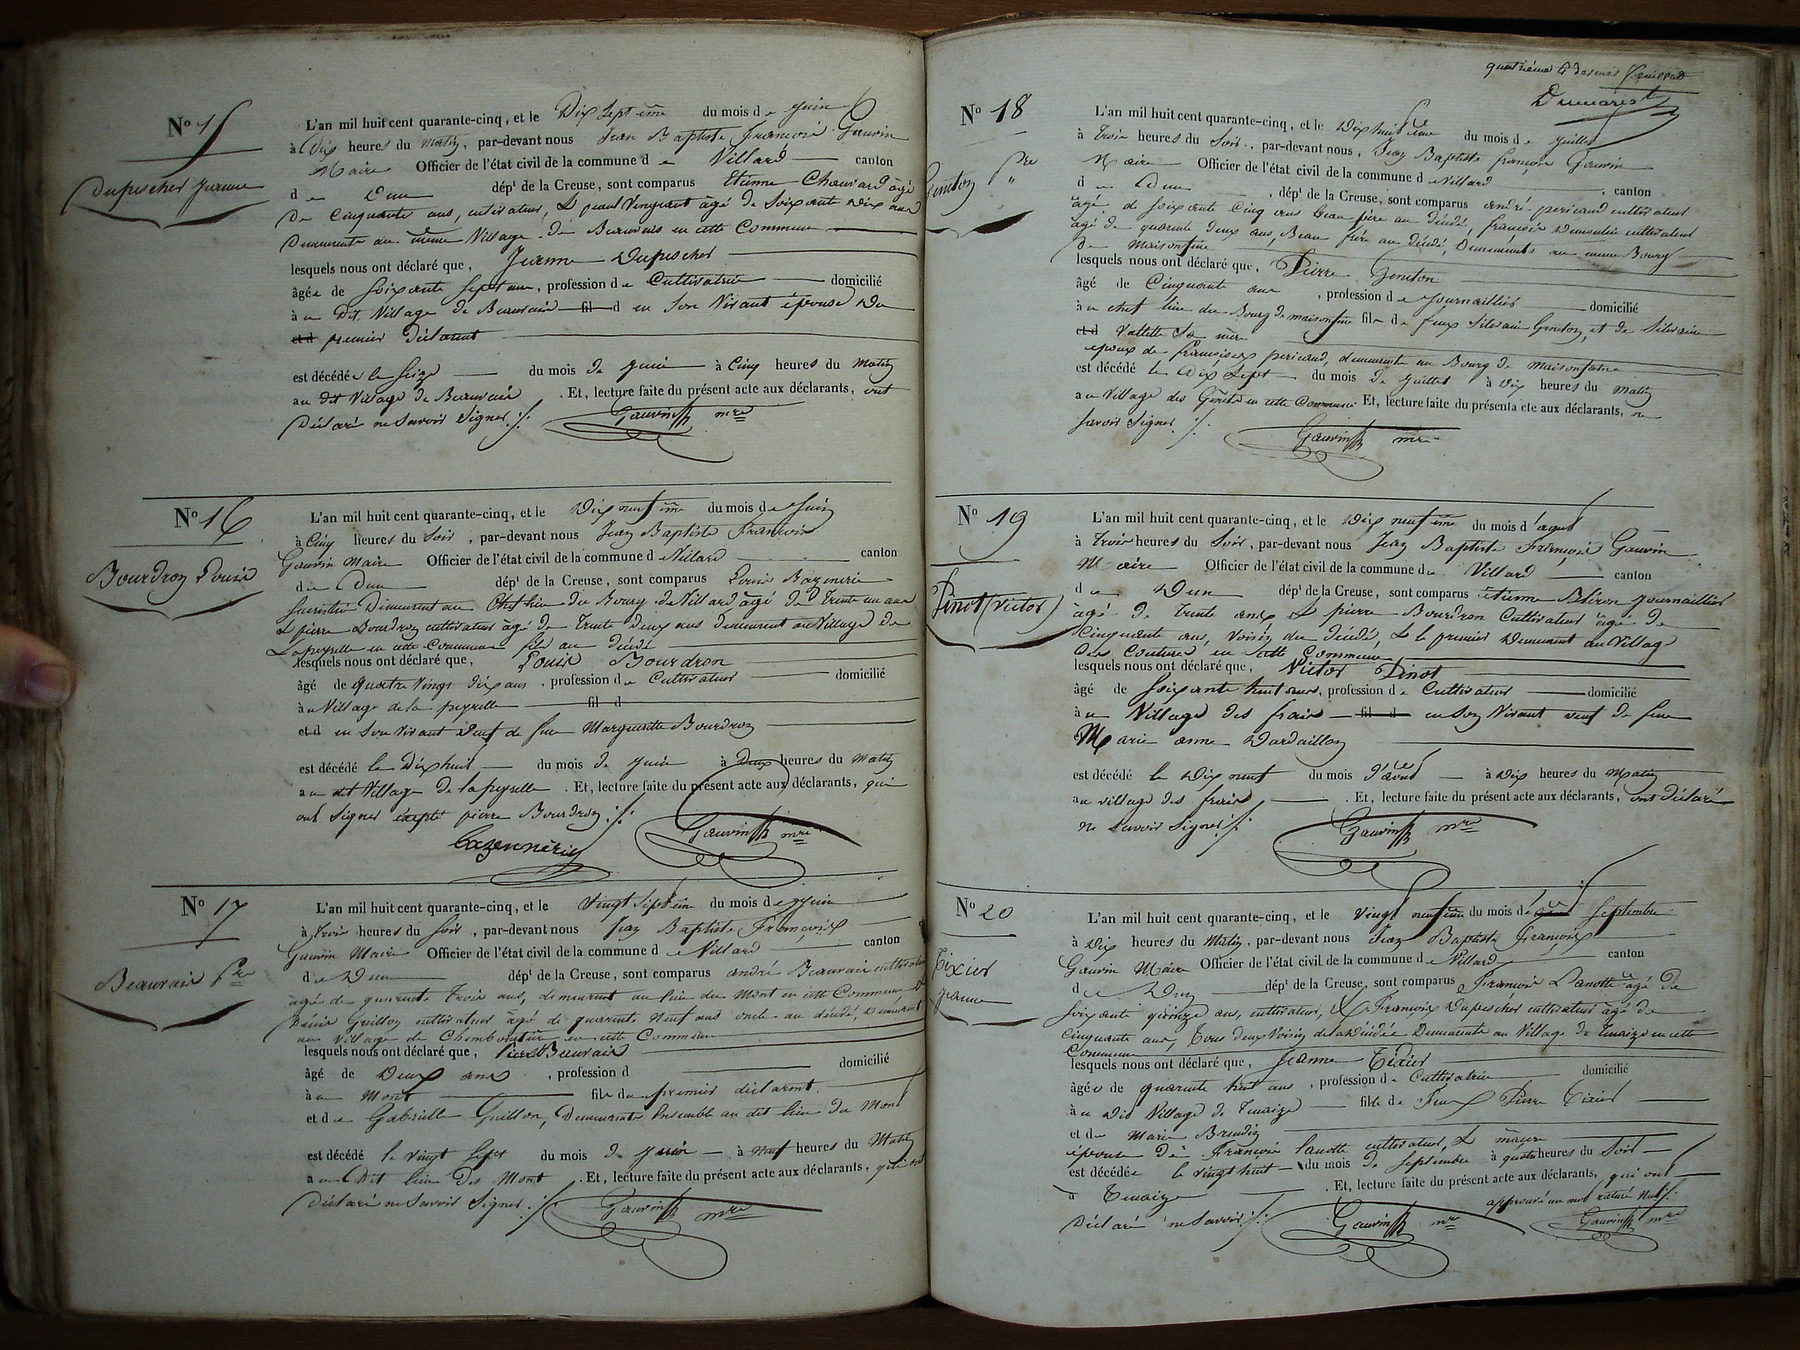 No 15
Dupescher Jeanne
L'an mil huit cent quarante-cinq, et le Dix Septième du mois de juin
à Dix heures du Matin, par-devant nous Jean Baptiste François Gauvin
Maire Officier de l'état civil de la commune de Villard canton
de Dun dépt de la Creuse, sont comparus Etienne Chauvard âgé
De Cinquante ans, cultivateur, & paul Vincent âgé de Soixante Dix ans
Demeurants au même Village de Beauvais en cette Commune
lesquels nous ont déclaré que, Jeanne Dupescher
âgée de Soixante Sept ans, profession de Cultivatrice domicilié
à u Dit Village de Beauvais fil d en Son Vivant épouse Du
et d premier Déclarant
est décédée le Seize du mois de juin à Cinq heures du Matin
au dit Village de Beauvais . Et, lecture faite du présent acte aux déclarants, ont
Déclaré ne Savoir Signer ./.
Gauvin mre
No 16
Bourdron Louis
L'an mil huit cent quarante-cinq, et le Dix neufième du mois de Juin
à Cinq heures du Soir, par-devant nous Jean Baptiste François
Gauvin Maire Officier de l'état civil de la commune de Villard canton
de Dun dépt de la Creuse, sont comparus Louis Bazenerie
Sacristin Demeurant au Chef lieu du Bourg de Villard âgé De Trente un ans
& pierre Bourdron cultivateur âgé de Trente Deux ans demeurant au Village de
Lapeyrelle en cette Commune fils au décédé
lesquels nous ont déclaré que, Louis Bourdron
âgé de quatre Vingt dix ans, profession de Cultivateur domicilié
à u Village de la peyrelle fil d
et d en Son Vivant Veuf de feue Marguerite Bourdron
est décédé le Dix huit du mois de juin à Deux heures du Matin
au dit Village de Lapeyrelle . Et, lecture faite du présent acte aux déclarants, qui
ont Signer éxepté pierre Bourdron ./.
Bazennerie
Gauvin mre
No 17
Beauvais Pre
L'an mil huit cent quarante-cinq, et le Vingt Septième du mois de juin
à Trois heures du Soir, par-devant nous Jean Baptiste François
Gauvin Maire Officier de l'état civil de la commune de Villard canton
de Dun dépt de la Creuse, sont comparus andré Beauvais cultivateur
âgé de quarante Trois ans, demeurant au lieu du Mont en cette Commune &
Guillon cultivateur âgé de quarante Neuf ans oncle au décédé, Demeurant
au Village de en cette Commune
lesquels nous ont déclaré que, Pierre Beauvais
âgé de Deux ans, profession d domicilié
à u Mont fils du premier déclarant
et de Gabrielle Guillon, Demeurants Ensemble au dit lieu du Mont
est décédé le vingt Sept du mois de juin à Neuf heures du Matin
au Dit lieu Des Mont . Et, lecture faite du présent acte aux déclarants, qui ont
Déclaré ne Savoir Signer ./.
Gauvin mre
quatrième & dernier feuillet
Dumarest
No 18
Geniton Pre
L'an mil huit cent quarante-cinq, et le Dix huitième du mois de juillet
à Trois heures du Soir, par-devant nous, Jean Baptiste françois Gauvin
Maire Officier de l'état civil de la commune de Villard canton
de Dun, dépt de la Creuse, sont comparus andré pericaud cultivateur
âgé de Soixante Cinq ans beau père au décédé, françois Demoulin cultivateur
âgé de quarante deux ans, Beau frère au décédé, Demeurants au même Bourg
de Maisonfeine
lesquels nous ont déclaré que, Pierre Geniton
âgé de Cinquante ans, profession de journaillier domicilié
à u chef lieu du Bourg de maisonfeine fils de feux Silvain Geniton, et de Silvaine
et d Vallette Sa mère
epoux de françoise pericaud, demeurante au Bourg de Maisonfeine
est décédé le Dix Sept du mois de juillet à Dix heures du Matin
au Village des en cette Commune Et, lecture faite du présent acte aux déclarants, ne
Savoir Signer ./.
Gauvin mre
No 19
Pinot (Victor)
L'an mil huit cent quarante-cinq, et le Dix neufième du mois d'aout
à Trois heures du Soir, par-devant nous Jean Baptiste François Gauvin
Maire Officier de l'état civil de la commune de Villard canton
de Dun dépt de la Creuse, sont comparus étienne Bléron journaillier
âgé de Trente ans & pierre Bourdron Cultivateur âgé de
Cinquante ans, Voisin du décédé, & le premier Demeurant au Village
des Coutures en cette Commune
lesquels nous ont déclaré que, Victor Pinot
âgé de Soixante huit ans, profession de Cultivateur domicilié
à u Village des frais fil d en Son Vivant veuf de feue
Marie anne Dardaillon
est décédé le Dix neuf du mois d'aout à Dix heures du Matin
au village des frais . Et, lecture faite du présent acte aux déclarants, ont déclaré
ne Savoir Signer ./.
Gauvin mre
No 20
Tixier Jeanne
L'an mil huit cent quarante-cinq, et le Vingt neufième du mois de Septembre
à Dix heures du Matin, par-devant nous Jean Baptiste François
Gauvin Maire Officier de l'état civil de la commune de Villard canton
de Dun dépt de la Creuse, sont comparus François Lanotte âgé de
Soixante quinze ans, cultivateur, & François Dupescher cultivateur âgé de
Cinquante ans, Tous deux Voisins de la décédée Demeurants au Village de Tenaize en cette
Commune
lesquels nous ont déclaré que, Jeanne Tixier
âgée de quarante huit ans, profession de Cultivatrice domicilié
à u Dit Village de Tenaize fille de Feux Pierre Tixier
et de Marie
épouse de François Lanotte cultivateur,
est décédée le Vingt huit du mois de Septembre à quatre heures du Soir
à Tenaize . Et, lecture faite du présent acte aux déclarants, qui ont
approuvé un mot raturé Nul ./.
Déclaré ne Savoir ./.
Gauvin mre Gauvin mre